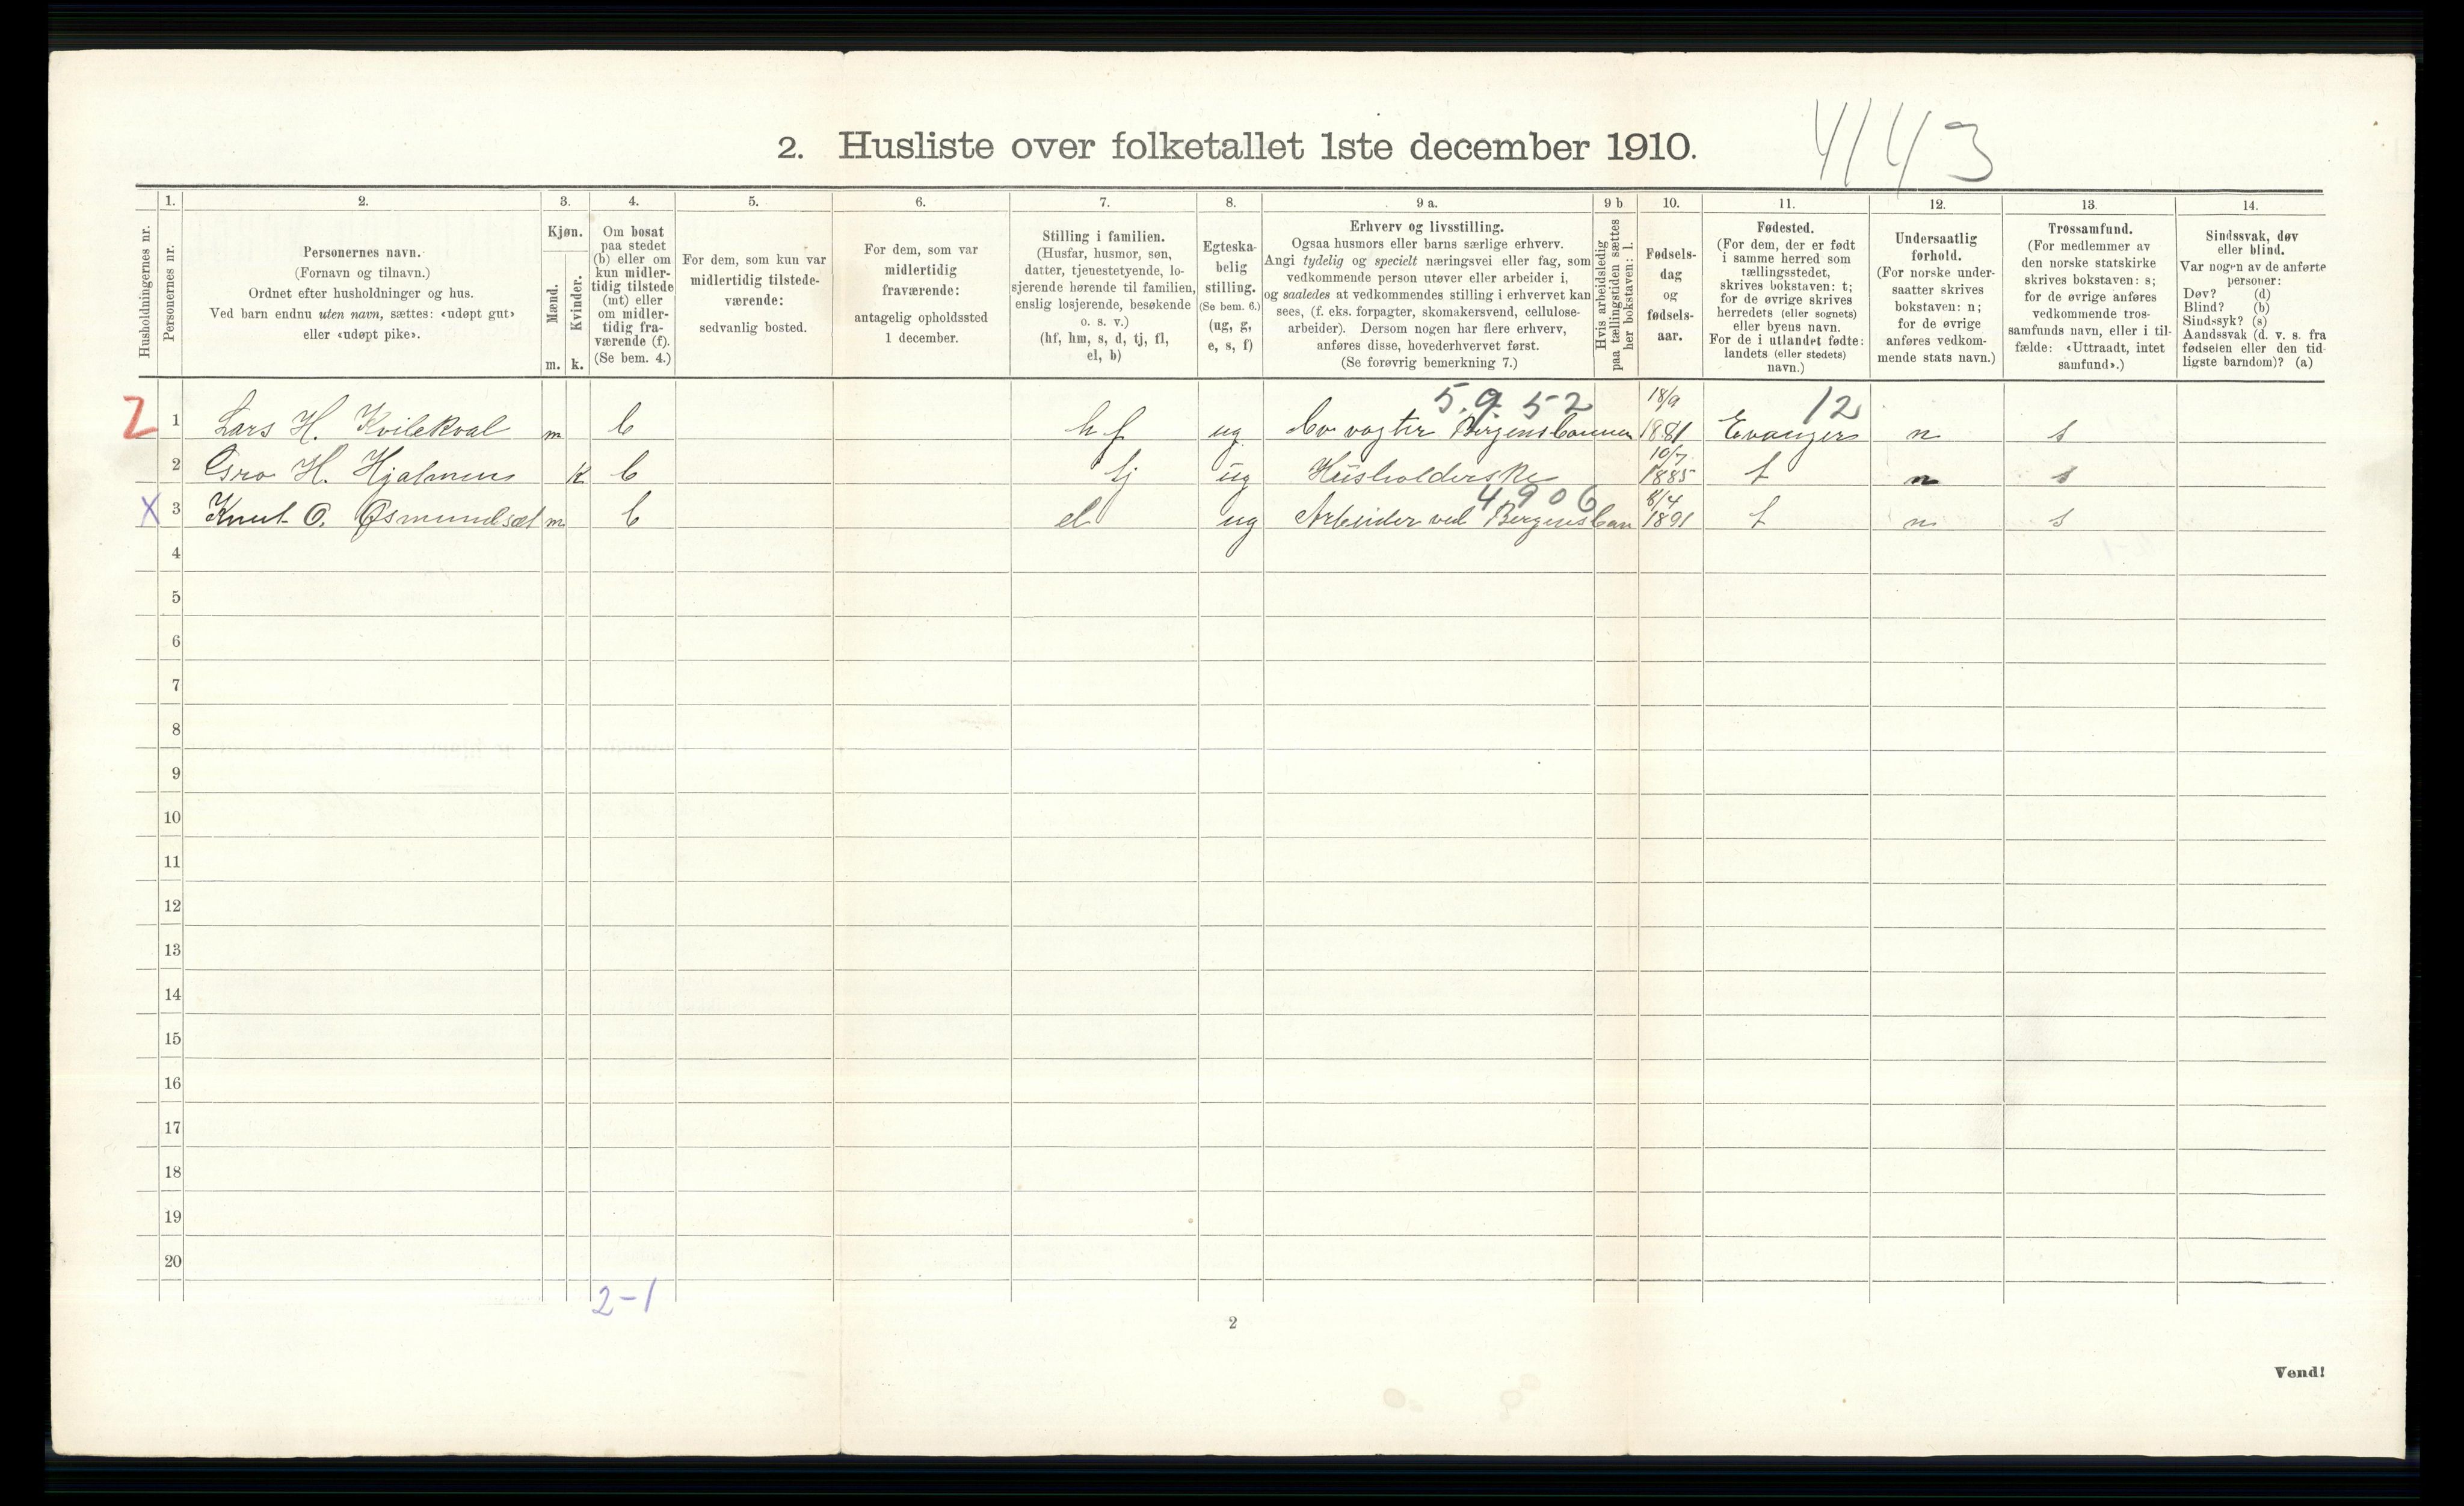 2. Husliste over folketallet 1ste december 1910.
4143
Husholdningernes nr.
1.
Personernes nr.
2.
Personernes navn.
(Fornavn og tilnavn.)
Ordnet efter husholdninger og hus.
Ved barn endnu uten navn, sættes: «udøpt gut»
eller «udøpt pike».
3.
Kjøn.
Mænd.
m.
Kvinder.
k.
4.
Om bosat
paa stedet
(b) eller om
kun midler-
tidig tilstede
(mt) eller
om midler-
tidig fra-
værende (f).
(Se bem. 4.)
5.
For dem, som kun var
midlertidig tilstede-
værende:
sedvanlig bosted.
6.
For dem, som var
midlertidig
fraværende:
antagelig opholdssted
1 december.
7.
Stilling i familien.
(Husfar, husmor, søn,
datter, tjenestetyende, lo-
sjerende hørende til familien,
enslig losjerende, besøkende
o. s. v.)
(hf, hm, s, d, tj, fl,
el, b)
8.
Egteska-
belig
stilling.
(Se bem. 6.)
(ug, g,
e, s, f)
9 a.
Erhverv og livsstilling.
Ogsaa husmors eller barns særlige erhverv.
Angi tydelig og specielt næringsvei eller fag, som
vedkommende person utøver eller arbeider i,
og saaledes at vedkommendes stilling i erhvervet kan
sees, (f. eks. forpagter, skomakersvend, cellulose-
arbeider). Dersom nogen har flere erhverv,
anføres disse, hovederhvervet først.
(Se forøvrig bemerkning 7.)
9 b
Hvis arbeidsledig
paa tællingstiden sættes
her bokstaven: l.
10.
Fødsels-
dag
og
fødsels-
aar.
11.
Fødested.
(For dem, der er født
i samme herred som
tællingsstedet,
skrives bokstaven: t;
for de øvrige skrives
herredets (eller sognets)
eller byens navn.
For de i utlandet fødte:
landets (eller stedets)
navn.)
12.
Undersaatlig
forhold.
(For norske under-
saatter skrives
bokstaven: n;
for de øvrige
anføres vedkom-
mende stats navn.)
13.
Trossamfund.
(For medlemmer av
den norske statskirke
skrives bokstaven: s;
for de øvrige anføres
vedkommende tros-
samfunds navn, eller i til-
fælde: «Uttraadt, intet
samfund».)
14.
Sindssvak, døv
eller blind.
Var nogen av de anførte
personer:
Døv? (d)
Blind? (b)
Sindssyk? (s)
Aandssvak (d. v. s. fra
fødselen eller den tid-
ligste barndom)? (a)
5.9 52 18/9 12
1 Lars H. Kvilekval m b hf ug Bergensbanen 1881 Evanger n s
10/7
2 Gro H. Hjalmens k b tj ug Husholderske 1885 t n s
4906 8/4
X 3 Knut O. Øsmundset m b el ug Arbeider ved Bergensban 1891 t n s
4
5
6
7
8
9
10
11
12
13
14
15
16
17
18
19
20
2-1
2
Vend!